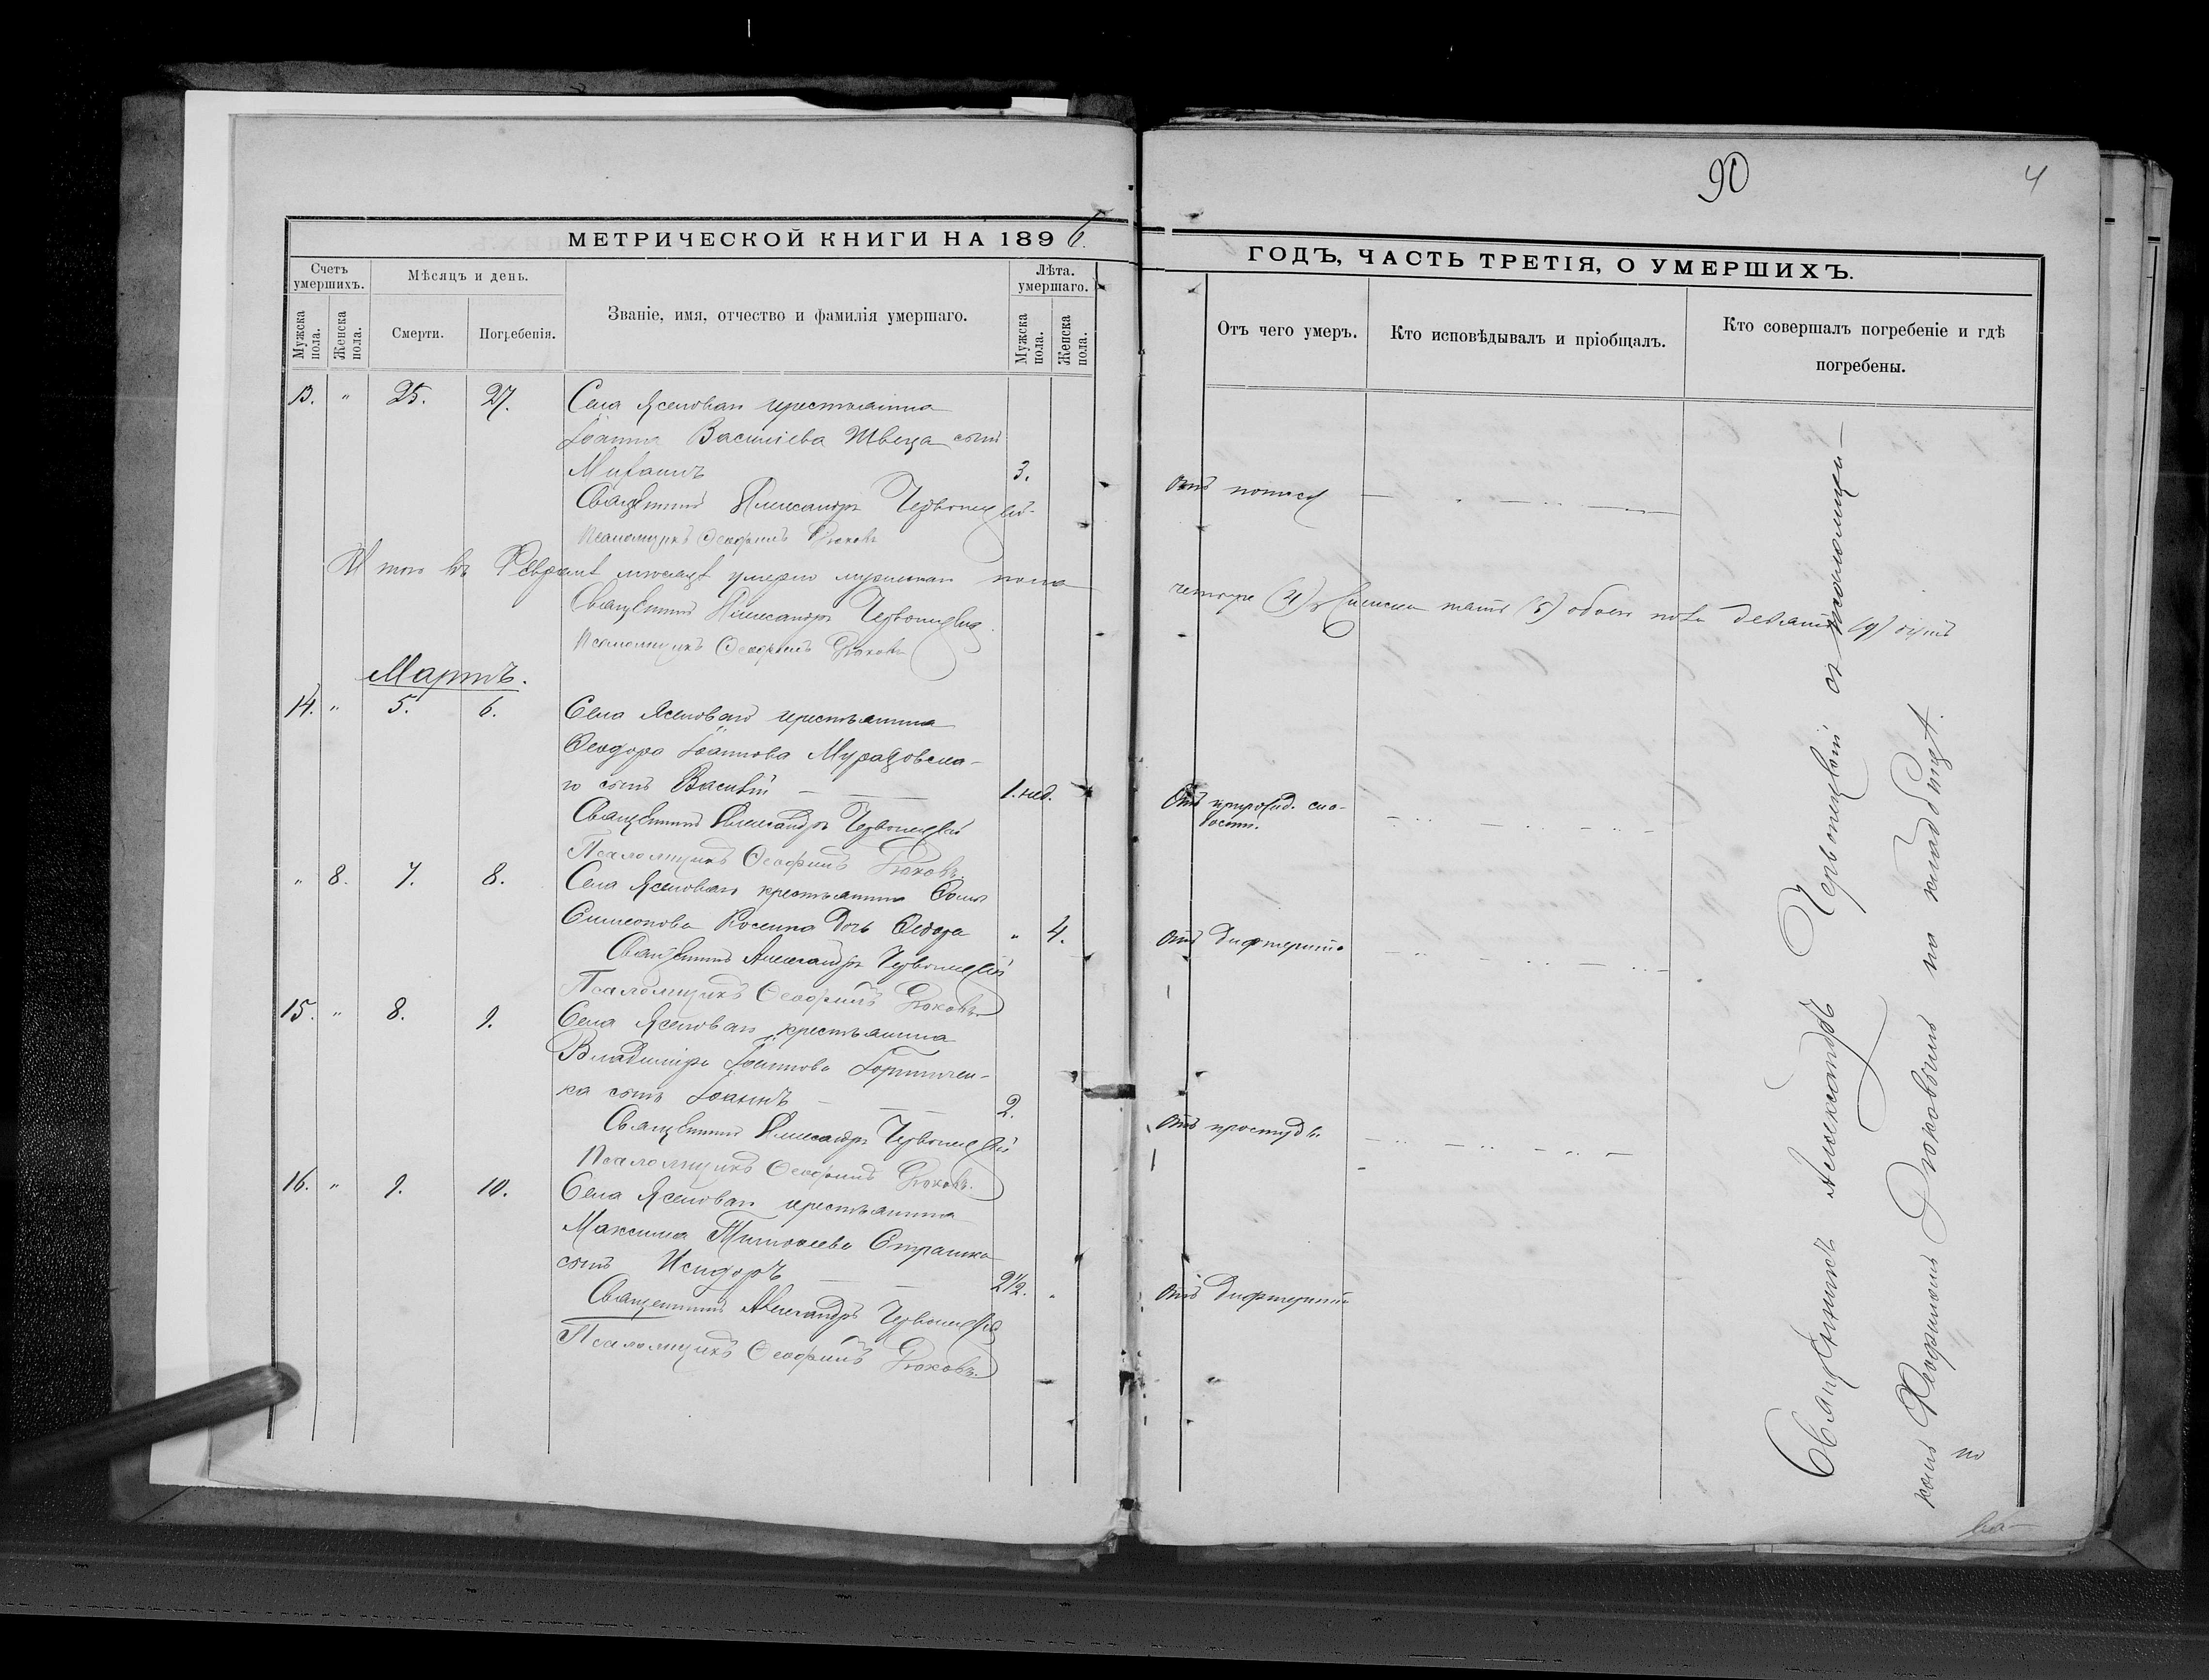 90
4
МЕТРИЧЕСКОЙ КНИГИ НА 1896.
ГОДЪ, ЧАСТЬ ТРЕТІЯ, О УМЕРШИХЪ.
Счетъ умершихъ.
Мужска пола.
Женска пола.
Мѣсяцъ и день.
Смерти.
Погребенія.
Званіе, имя, отчество и фамилія умершаго.
Лѣта. умершаго.
Мужска пола.
Женска пола.
Отъ чего умеръ.
Кто исповѣдывалъ и пріобщалъ.
Кто совершалъ погребеніе и гдѣ
погребены.
13. " 25. 27. Села Ясеноваго крестьянина
Іоанна Василіева Швеца сынъ
Михаилъ 3.
Священникъ Александръ Червонецкій
Псаломщикъ Ѳеофилъ Рюховъ
Отъ поноса
Итого въ Февралѣ мѣсяцѣ умерло мужескаго пола
четыре (4), женска пять (5) обоего пола девять (9) душъ
Священникъ Александръ Червонецкій
Псаломщикъ Ѳеофилъ Рюховъ
Мартъ.
14. " 5. 6. Села Ясеноваго крестьянина
Ѳеодора Іоаннова Мураховска-
го сынъ Василій 1. нед.
Отъ прирожд. сла-
бости.
Священникъ Александръ Червонецкій
Псаломщикъ Ѳеофилъ Рюховъ
" 8. 7. 8. Села Ясеноваго крестьянина Ѳомы
Симеонова дочь " 4.
Отъ дифтерита
Священникъ Александръ Червонецкій
Псаломщикъ Ѳеофилъ Рюховъ
15. " 8. 9. Села Ясеноваго крестьянина
Владиміра Іоаннова
ка сынъ Іоаннъ 2.
Отъ простуды.
Священникъ Александръ Червонецкій
Псаломщикъ Ѳеофилъ Рюховъ.
16. " 9. 10. Села Ясеноваго крестьянина
Максима Тимоѳеева
сынъ Исидоръ 2½. "
Отъ дифтерита
Священникъ Александръ Червонецкій
Псаломщикъ Ѳеофилъ Рюховъ.
Священникъ Александръ Червонецкій съ псаломщи-
комъ Ѳеофиломъ Рюховымъ на кладбищѣ.
по